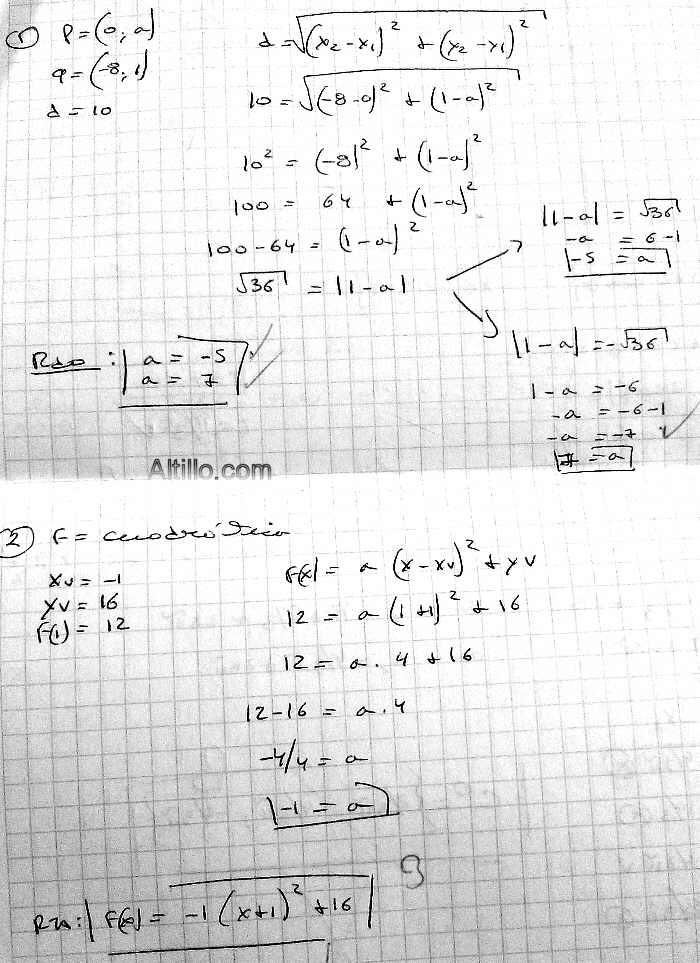 1) P = (0; a)
q = (-8; 1)
d = 10
d = √((x2 - x1)² + (y2 - y1)²)
10 = √((-8 - 0)² + (1 - a)²)
10² = (-8)² + (1-a)²
100 = 64 + (1-a)²
100 - 64 = (1-a)²
√36 = |1-a|
|1-a| = √36
-a = 6 - 1
-5 = a
|1-a| = -√36
1 - a = -6
-a = -6 - 1
-a = -7
7 = a
Rta : a = -5
a = 7
Altillo.com
2) F = cuadrática
xv = -1
yv = 16
F(1) = 12
F(x) = a (x - xv)² + yv
12 = a (1 + 1)² + 16
12 = a . 4 + 16
12 - 16 = a . 4
-4/4 = a
-1 = a
Rta: F(x) = -1 (x+1)² + 16